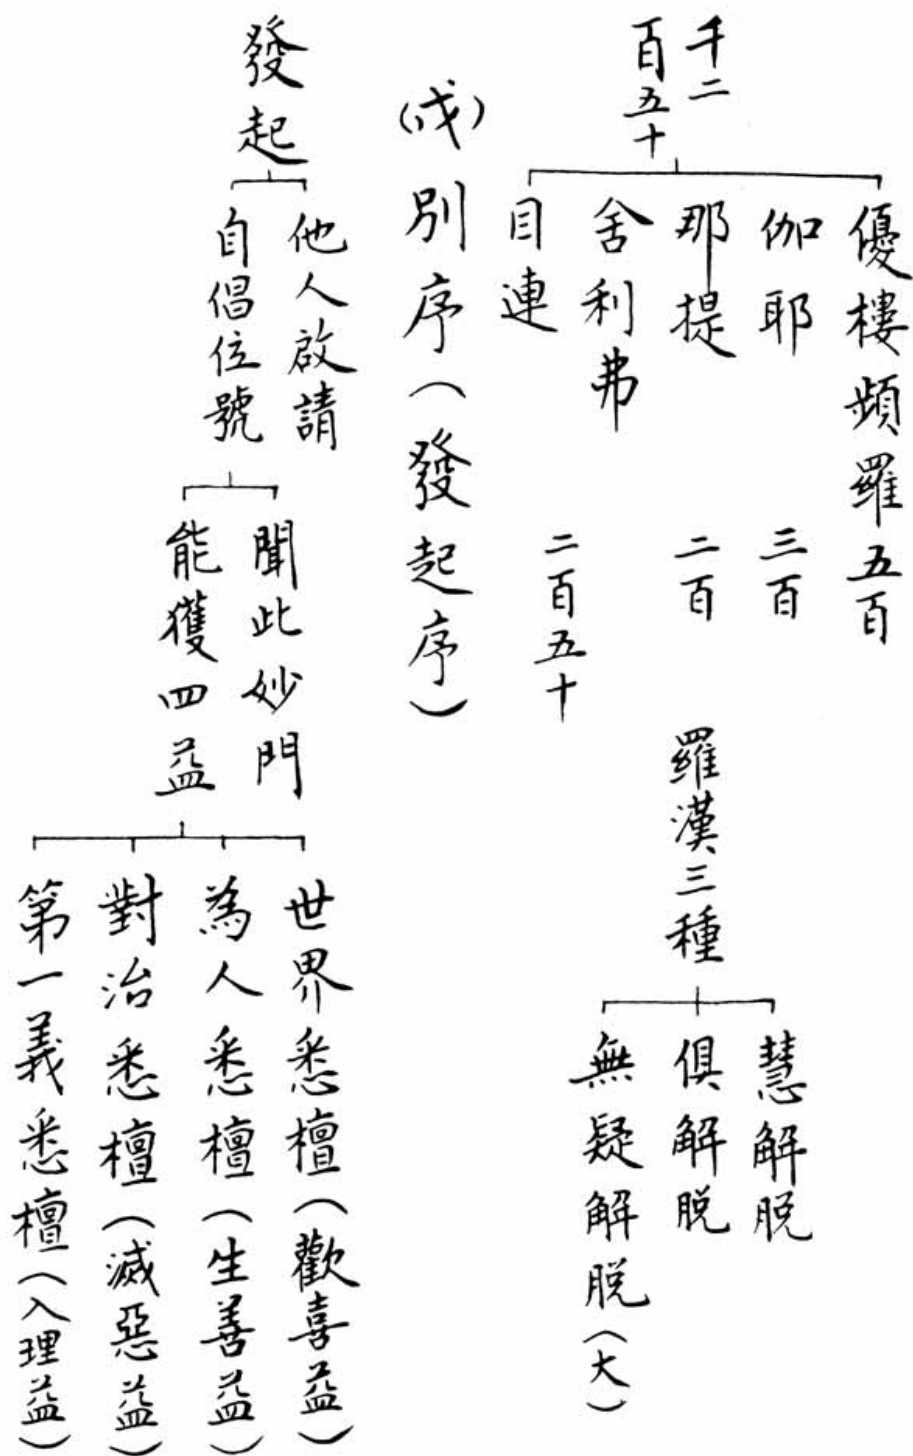 千二
百五十
優樓頻羅 五百
伽耶 三百
那提 二百
舍利弗
目連
二百五十
羅漢三種
慧解脫
俱解脫
無疑解脫（大）
（戊）別序（發起序）
發起
他人啟請
自倡位號
聞此妙門
能獲四益
世界悉檀（歡喜益）
為人悉檀（生善益）
對治悉檀（滅惡益）
第一義悉檀（入理益）